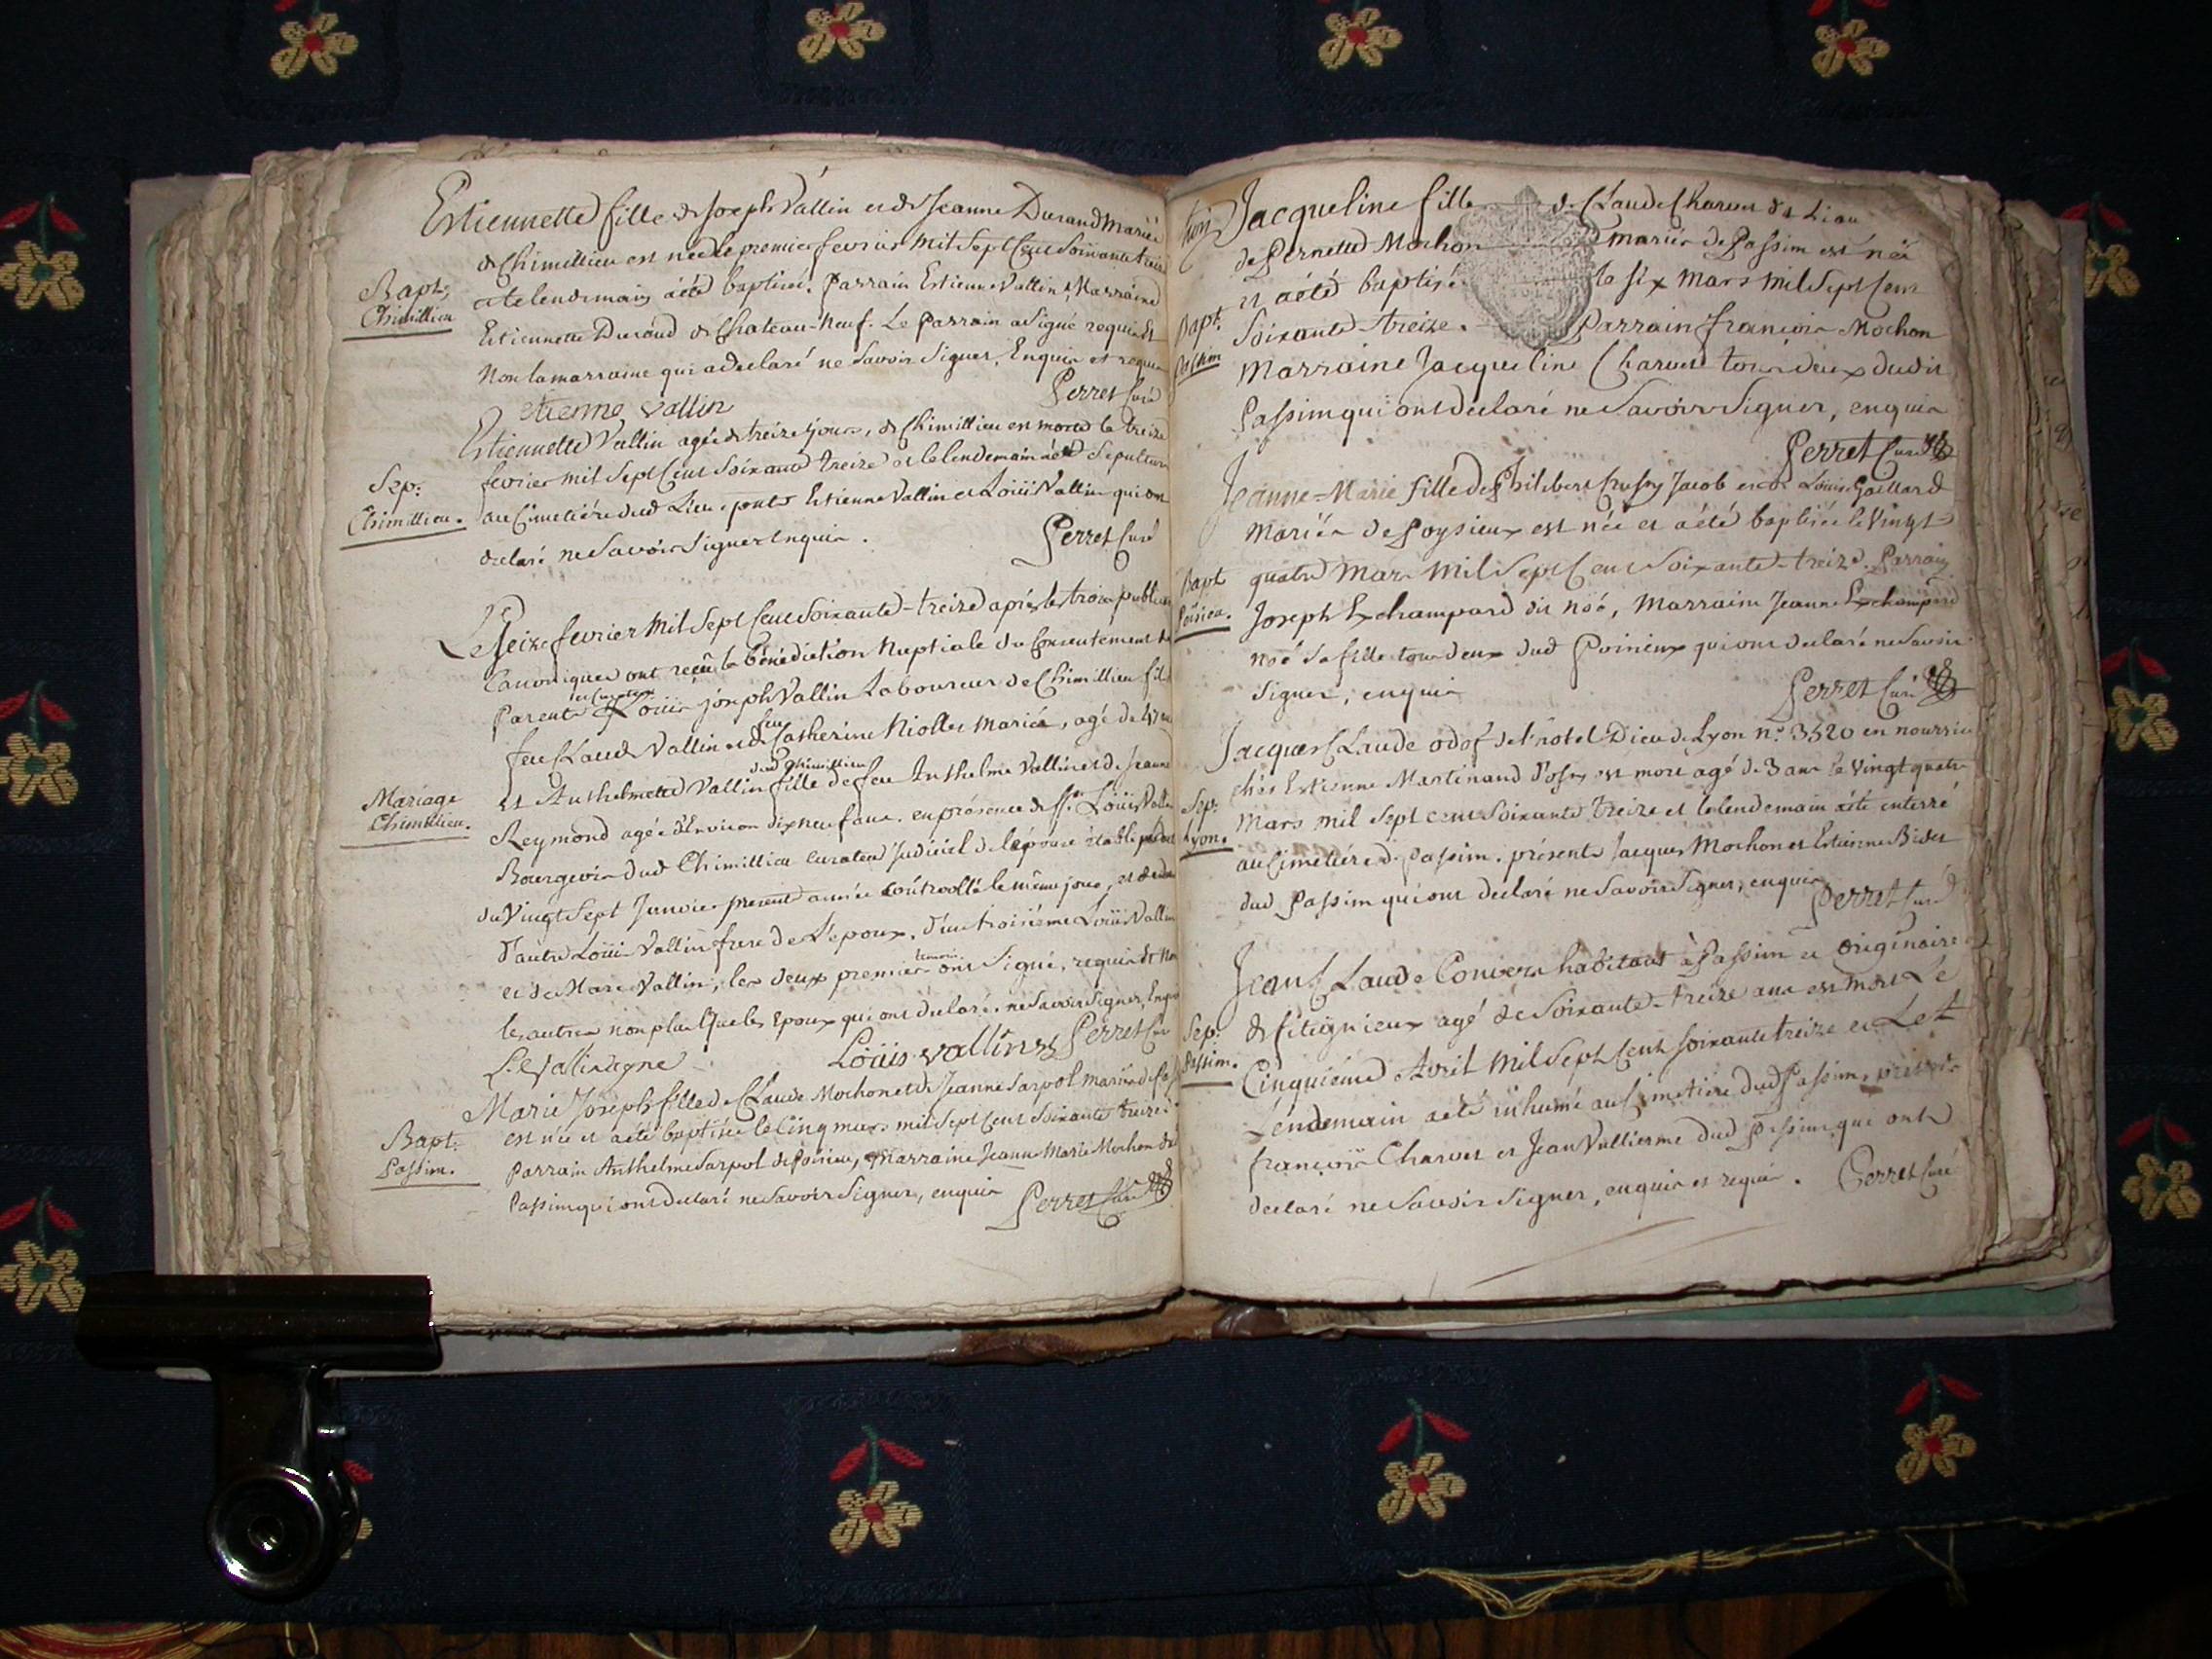 Estiennette fille de Joseph Vallin et de Jeanne Durand Mariés
de Chimillieu est née le premier fevrier Mil Sept Cent Soixante treize
et le lendemain a été baptisée. Parrain Estienne Vallin, Marraine
Bapt:
Chimillieu
Estiennette Durand de Chateau-Neuf. Le Parrain a Signé requis et
Non la marraine qui a declaré ne Savoir Signer, Enquis et requis
Perret Curé
etienne vallin
Estiennette Vallin agée de treize jours, de Chimillieu est morte le treize
fevrier mil Sept Cent Soixante treize et le lendemain a été Sepulturée
Sep:
Chimillieu.
au Cimetiére dud. Lieu, pnts Estienne Vallin et Loüis Vallin qui ont
declaré ne Savoir Signer Enquis.
Perret Curé
Le Seize fevrier Mil Sept Cent Soixante-treize après les trois publica
Canoniques ont reçû la bénédiction Nuptiale du Consentement de
Parents et Curateur Loüis joseph Vallin Laboureur de Chimillieu fils
feu Claude Vallin et de feu Catherine Niollet Mariés, agé de 47 ans
Et Anthelmette Vallin dud Chimillieu fille de feu Anthelme Vallin et de Jeanne
Mariage
Chimillieu.
Reymond agée d'Environ dix neuf ans. en présence de Sr. Loüis Vallin
Bourgeois dud Chimillieu curateur Judiciel de l'épouse établi
du Vingt Sept Janvier present année contrôllé le même jour, et
d'autre Loüis Vallin frere de L'epoux, d'un troisiéme Loüis Vallin
et de Marc Vallin, les deux premiers temoins ont Signé, requis et Non
les autres non plus que les Epoux qui ont declarés ne Savoir Signer, Enquis
Loüis vallin Perret Curé
Marie Joseph fille de Claude Mochon et de Jeanne Sarpol mariés de
est née et a été baptisée le Cinq mars mil Sept Cent Soixante treize.
Bapt:
Passim.
Parrain Anthelme Sarpol de Poisieu, Marraine Jeanne Marie Mochon de
Passim qui ont declaré ne Savoir Signer, enquis
Perret Curé
Jacqueline fille de Claude Charvet et
de Pernette Mochon mariés de Passim est née
et a été baptisé le six Mars Mil Sept Cent
Bapt.
Passim
Soixante-treize. Parrain françois Mochon
Marraine Jacqueline Charvet tous deux dudit
Passim qui ont declaré ne Savoir Signer, enquis
Perret Curé
Jeanne-Marie fille de Philibert Jacob et de Louise Gaillard
Mariés de Poysieux est née et a été baptisée le Vingt-
Bapt
Poisieu.
quatre Mars Mil Sept Cent Soixante-treize. Parrain
Joseph Echampard dit Noé, Marraine Jeanne Echampard
noé Sa fille tous deux dud Poisieux qui ont declaré ne Savoir
Signer, enquis
Perret Curé
Jacques Claude de l'hôtel Dieu de Lyon n° 3520 en nourrice
chés Estienne Martinand est mort agé de 3 ans le Vingt quatre
Sep:
Lyon.
Mars mil Sept cent Soixante treize et le lendemain a été enterré
au Cimetiére de Passim. présents Jacques Mochon et Estienne Bidet
dud Passim qui ont declaré ne Savoir Signer, enquis
Perret Curé
Jean Claude Convers habitant à Passim et originaire
de agé de Soixante-treize ans est mort Le
Sep:
Passim.
Cinquiéme Avril Mil Sept Cent Soixante treize et Le
Lendemain a été inhumé au Cimetiére dud Passim, présents
françois Charvet et Jean Vullierme dud Passim qui ont
declaré ne Savoir Signer, enquis et requis. Perret Curé